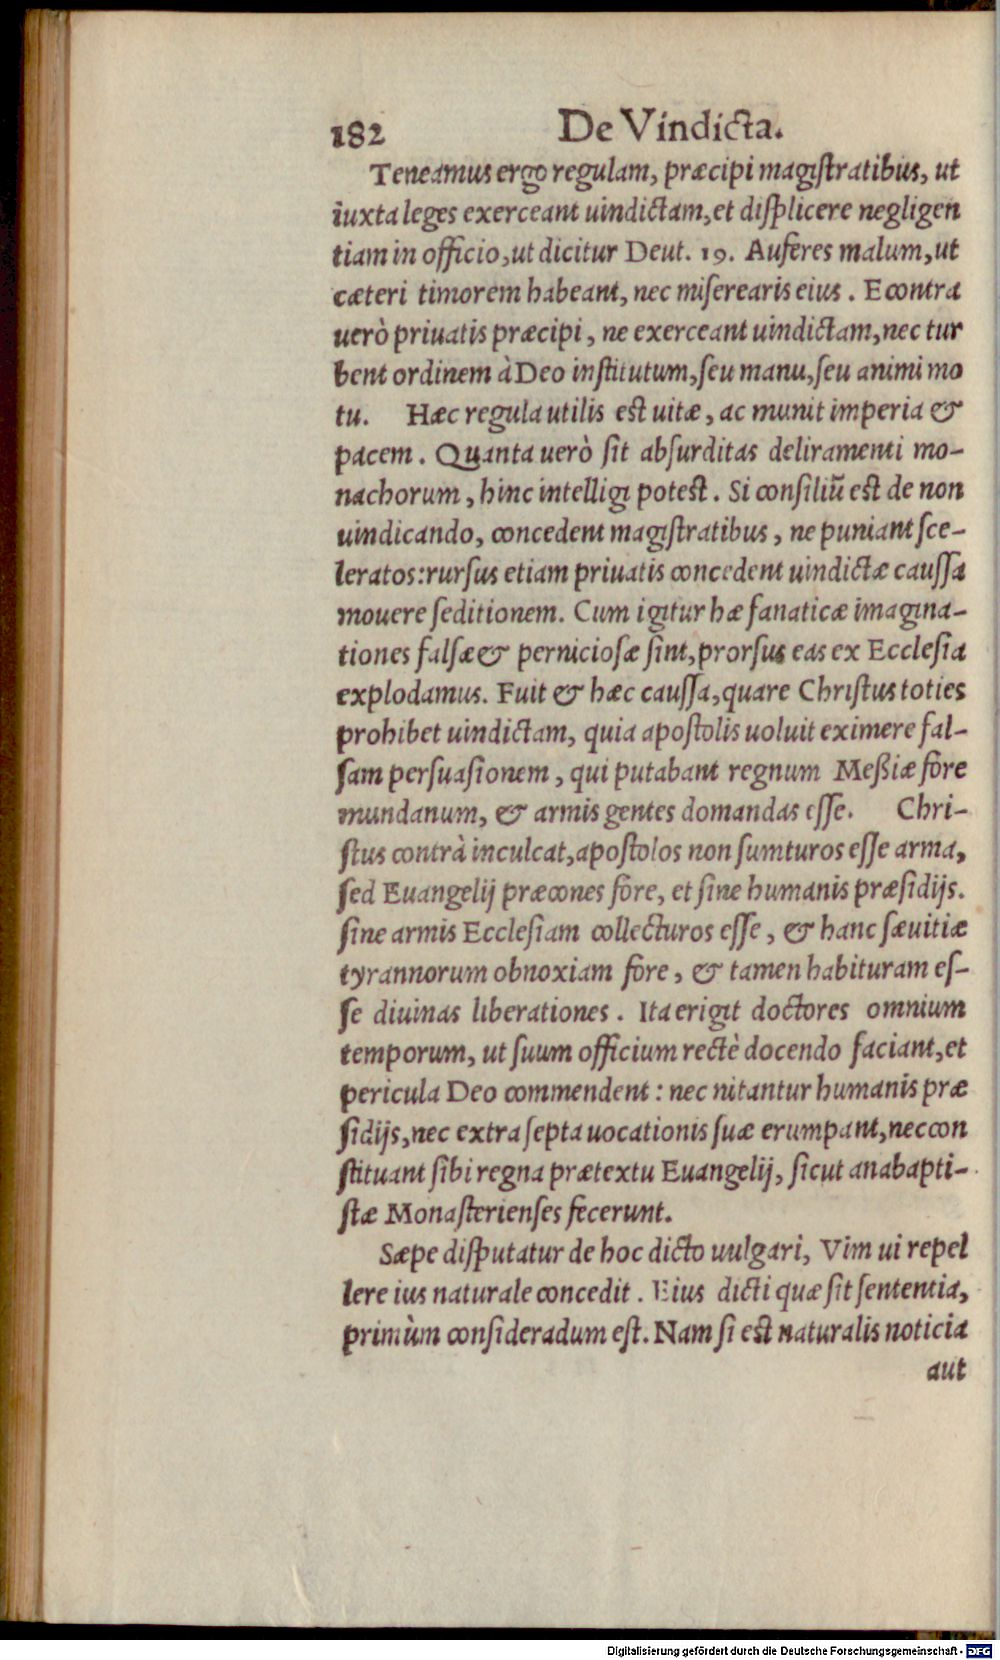 182 De Vindicta.
Teneamus ergo regulam, præcipi magistratibus, ut
iuxta leges exerceant uindictam, et displicere negligen
tiam in officio, ut dicitur Deut. 19. Auferes malum, ut
cæteri timorem habeant, nec miserearis eius. Econtra
uerò priuatis præcipi, ne exerceant uindictam, nec tur
bent ordinem à Deo institutum, seu manu, seu animi mo
tu. Hæc regula utilis est uitæ, ac munit imperia &
pacem. Quanta uerò sit absurditas deliramenti mo-
nachorum, hinc intelligi potest. Si consiliũ est de non
uindicando, concedent magistratibus, ne puniant sce-
leratos: rursus etiam priuatis concedent uindictæ caussa
mouere seditionem. Cum igitur hæ fanaticæ imagina-
tiones falsæ & perniciosæ sint, prorsus eas ex Ecclesia
explodamus. Fuit & hæc caussa, quare Christus toties
prohibet uindictam, quia apostolis uoluit eximere fal-
sam persuasionem, qui putabant regnum Meßiæ fore
mundanum, & armis gentes domandas esse. Chri-
stus contrà inculcat, apostolos non sumturos esse arma,
sed Euangelij præcones fore, et sine humanis præsidijs.
sine armis Ecclesiam collecturos esse, & hanc sæuitiæ
tyrannorum obnoxiam fore, & tamen habituram es-
se diuinas liberationes. Ita erigit doctores omnium
temporum, ut suum officium rectè docendo faciant, et
pericula Deo commendent: nec nitantur humanis præ
sidijs, nec extra septa uocationis suæ erumpant, nec con
stituant sibi regna prætextu Euangelij, sicut anabapti-
stæ Monasterienses fecerunt.
Sæpe disputatur de hoc dicto uulgari, Vim ui repel
lere ius naturale concedit. Eius dicti quæ sit sententia,
primùm consideradum est. Nam si est naturalis noticia
aut
Digitalisierung gefördert durch die Deutsche Forschungsgemeinschaft - DFG